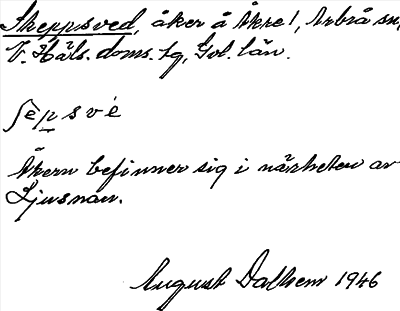 Skeppsved, åker å Åkre 1, Arbrå sn,
V. Häls. doms. tg, Gvl. län.
ʃèpsvé
Åkern befinner sig i närheten av
Ljusnan.
August Dalhem 1946